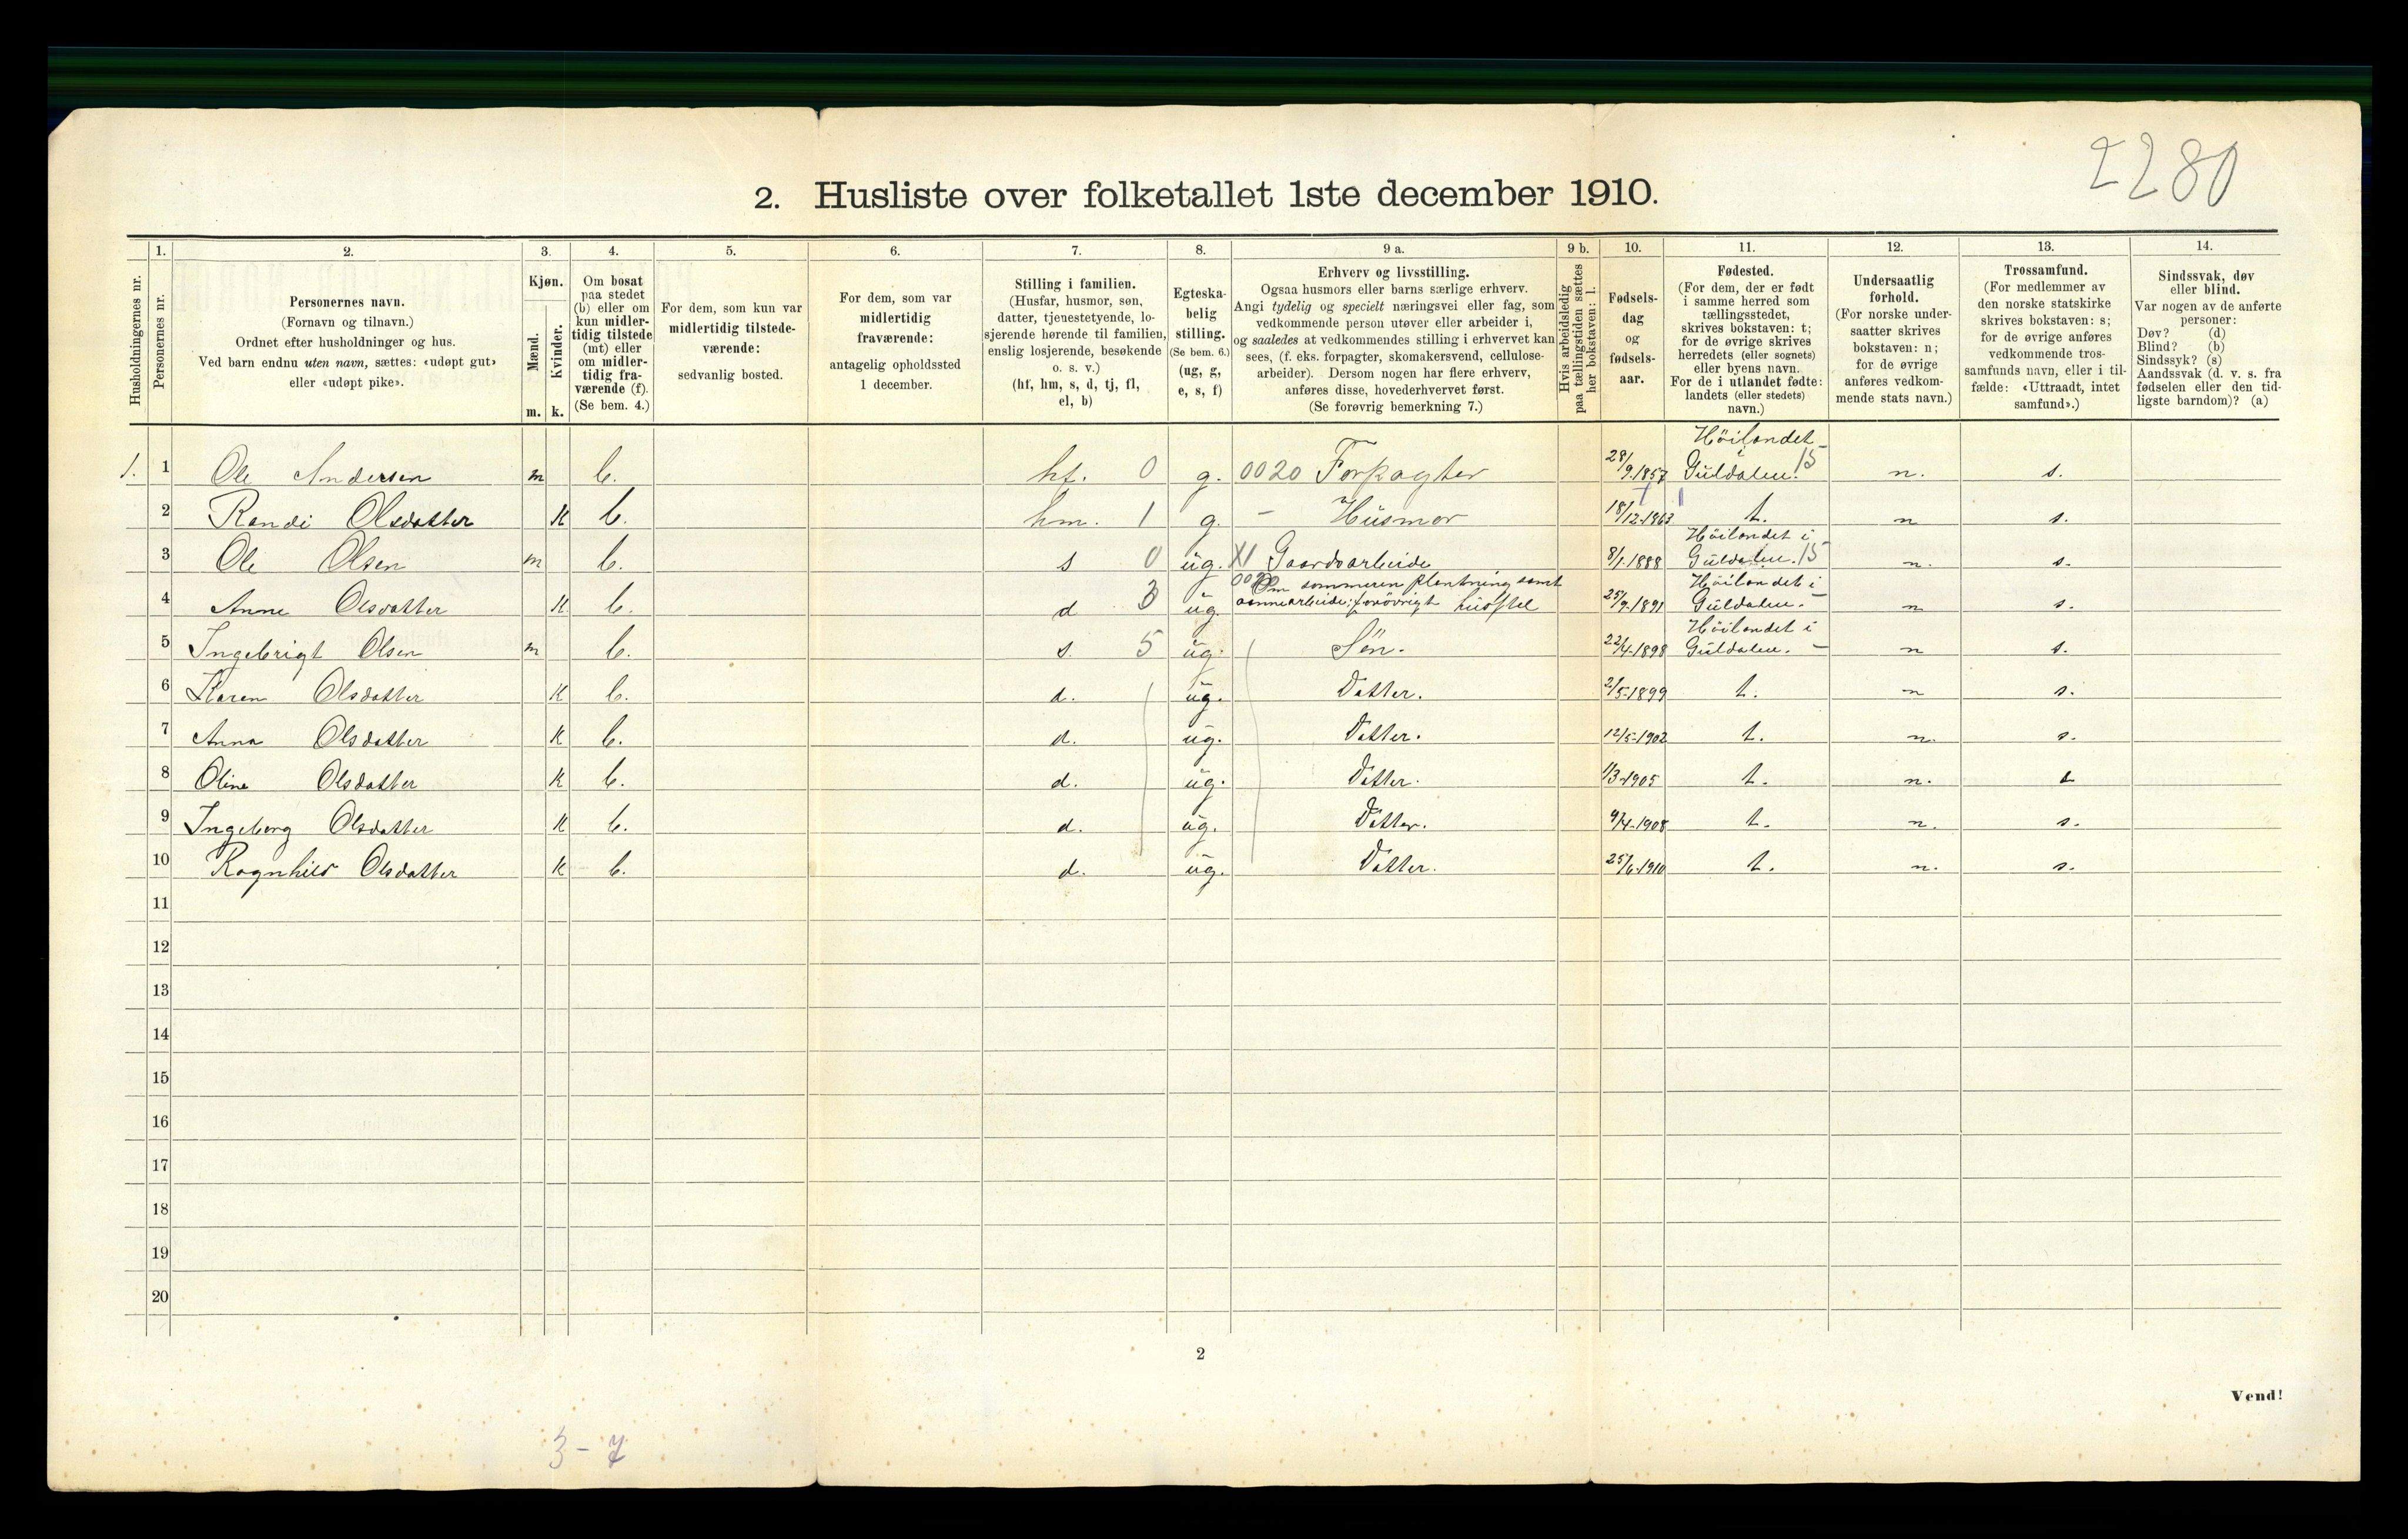 2280
2. Husliste over folketallet 1ste december 1910.
Husholdningernes nr.
1.
Personernes nr.
2.
Personernes navn.
(Fornavn og tilnavn.)
Ordnet efter husholdninger og hus.
Ved barn endnu uten navn, sættes: «udøpt gut»
eller «udøpt pike».
3.
Kjøn.
Mænd.
Kvinder.
m. k.
4.
Om bosat
paa stedet
(b) eller om
kun midler-
tidig tilstede
(mt) eller
om midler-
tidig fra-
værende (f).
(Se bem. 4.)
5.
For dem, som kun var
midlertidig tilstede-
værende:
sedvanlig bosted.
6.
For dem, som var
midlertidig
fraværende:
antagelig opholdssted
1 december.
7.
Stilling i familien.
(Husfar, husmor, søn,
datter, tjenestetyende, lo-
sjerende hørende til familien,
enslig losjerende, besøkende
o. s. v.)
(hf, hm, s, d, tj, fl,
el, b)
8.
Egteska-
belig
stilling.
(Se bem. 6.)
(ug, g,
e, s, f)
9 a.
Erhverv og livsstilling.
Ogsaa husmors eller barns særlige erhverv.
Angi tydelig og specielt næringsvei eller fag, som
vedkommende person utøver eller arbeider i,
og saaledes at vedkommendes stilling i erhvervet kan
sees, (f. eks. forpagter, skomakersvend, cellulose-
arbeider). Dersom nogen har flere erhverv,
anføres disse, hovederhvervet først.
(Se forøvrig bemerkning 7.)
9 b.
Hvis arbeidsledig
paa tællingstiden sættes
her bokstaven: l.
10.
Fødsels-
dag
og
fødsels-
aar.
11.
Fødested.
(For dem, der er født
i samme herred som
tællingsstedet,
skrives bokstaven: t;
for de øvrige skrives
herredets (eller sognets)
eller byens navn.
For de i utlandet fødte:
landets (eller stedets)
navn.)
12.
Undersaatlig
forhold.
(For norske under-
saatter skrives
bokstaven: n;
for de øvrige
anføres vedkom-
mende stats navn.)
13.
Trossamfund.
(For medlemmer av
den norske statskirke
skrives bokstaven: s;
for de øvrige anføres
vedkommende tros-
samfunds navn, eller i til-
fælde: «Uttraadt, intet
samfund».)
14.
Sindssvak, døv
eller blind.
Var nogen av de anførte
personer:
Døv? (d)
Blind? (b)
Sindssyk? (s)
Aandssvak (d. v. s. fra
fødselen eller den tid-
ligste barndom)? (a)
1. 1 Ole Andersen m b. hf. 0 g. 0020 Forpagter 28/9.1857 Höilandet i Guldalen. 15 n. s.
2 Randi Olsdatter K b. hm. 1 g. – Husmor 18/12-1863 t. n s.
3 Ole Olsen m b. s 0 ug. XI Gaardsarbeide 8/1-1888 Höilandet i Guldalen. 15 n. s.
4 Anne Olsdatter K b. d 3 ug. Om sommeren plantning samt
onnearbeide; forövrigt husstel 25/9-1891 Höilandet i Guldalen. – n s.
5 Ingebrigt Olsen m b. s. 5 ug. Sön. 22/4-1898 Höilandet i Guldalen. – n s.
6 Karen Olsdatter K b. d. ug. Datter. 2/5-1899 t. n s.
7 Anna Olsdatter K b. d. ug. Datter. 12/5-1902 t. n. s.
8 Oline Olsdatter K b. d. ug. Datter. 1/3-1905 t. n. s
9 Ingeborg Olsdatter K b. d. ug. Datter. 9/4-1908 t. n. s.
10 Ragnhild Olsdatter K b. d. ug. Datter. 25/6-1910 t. n. s.
11
12
13
14
15
16
17
18
19
20
2
Vend!
3-7